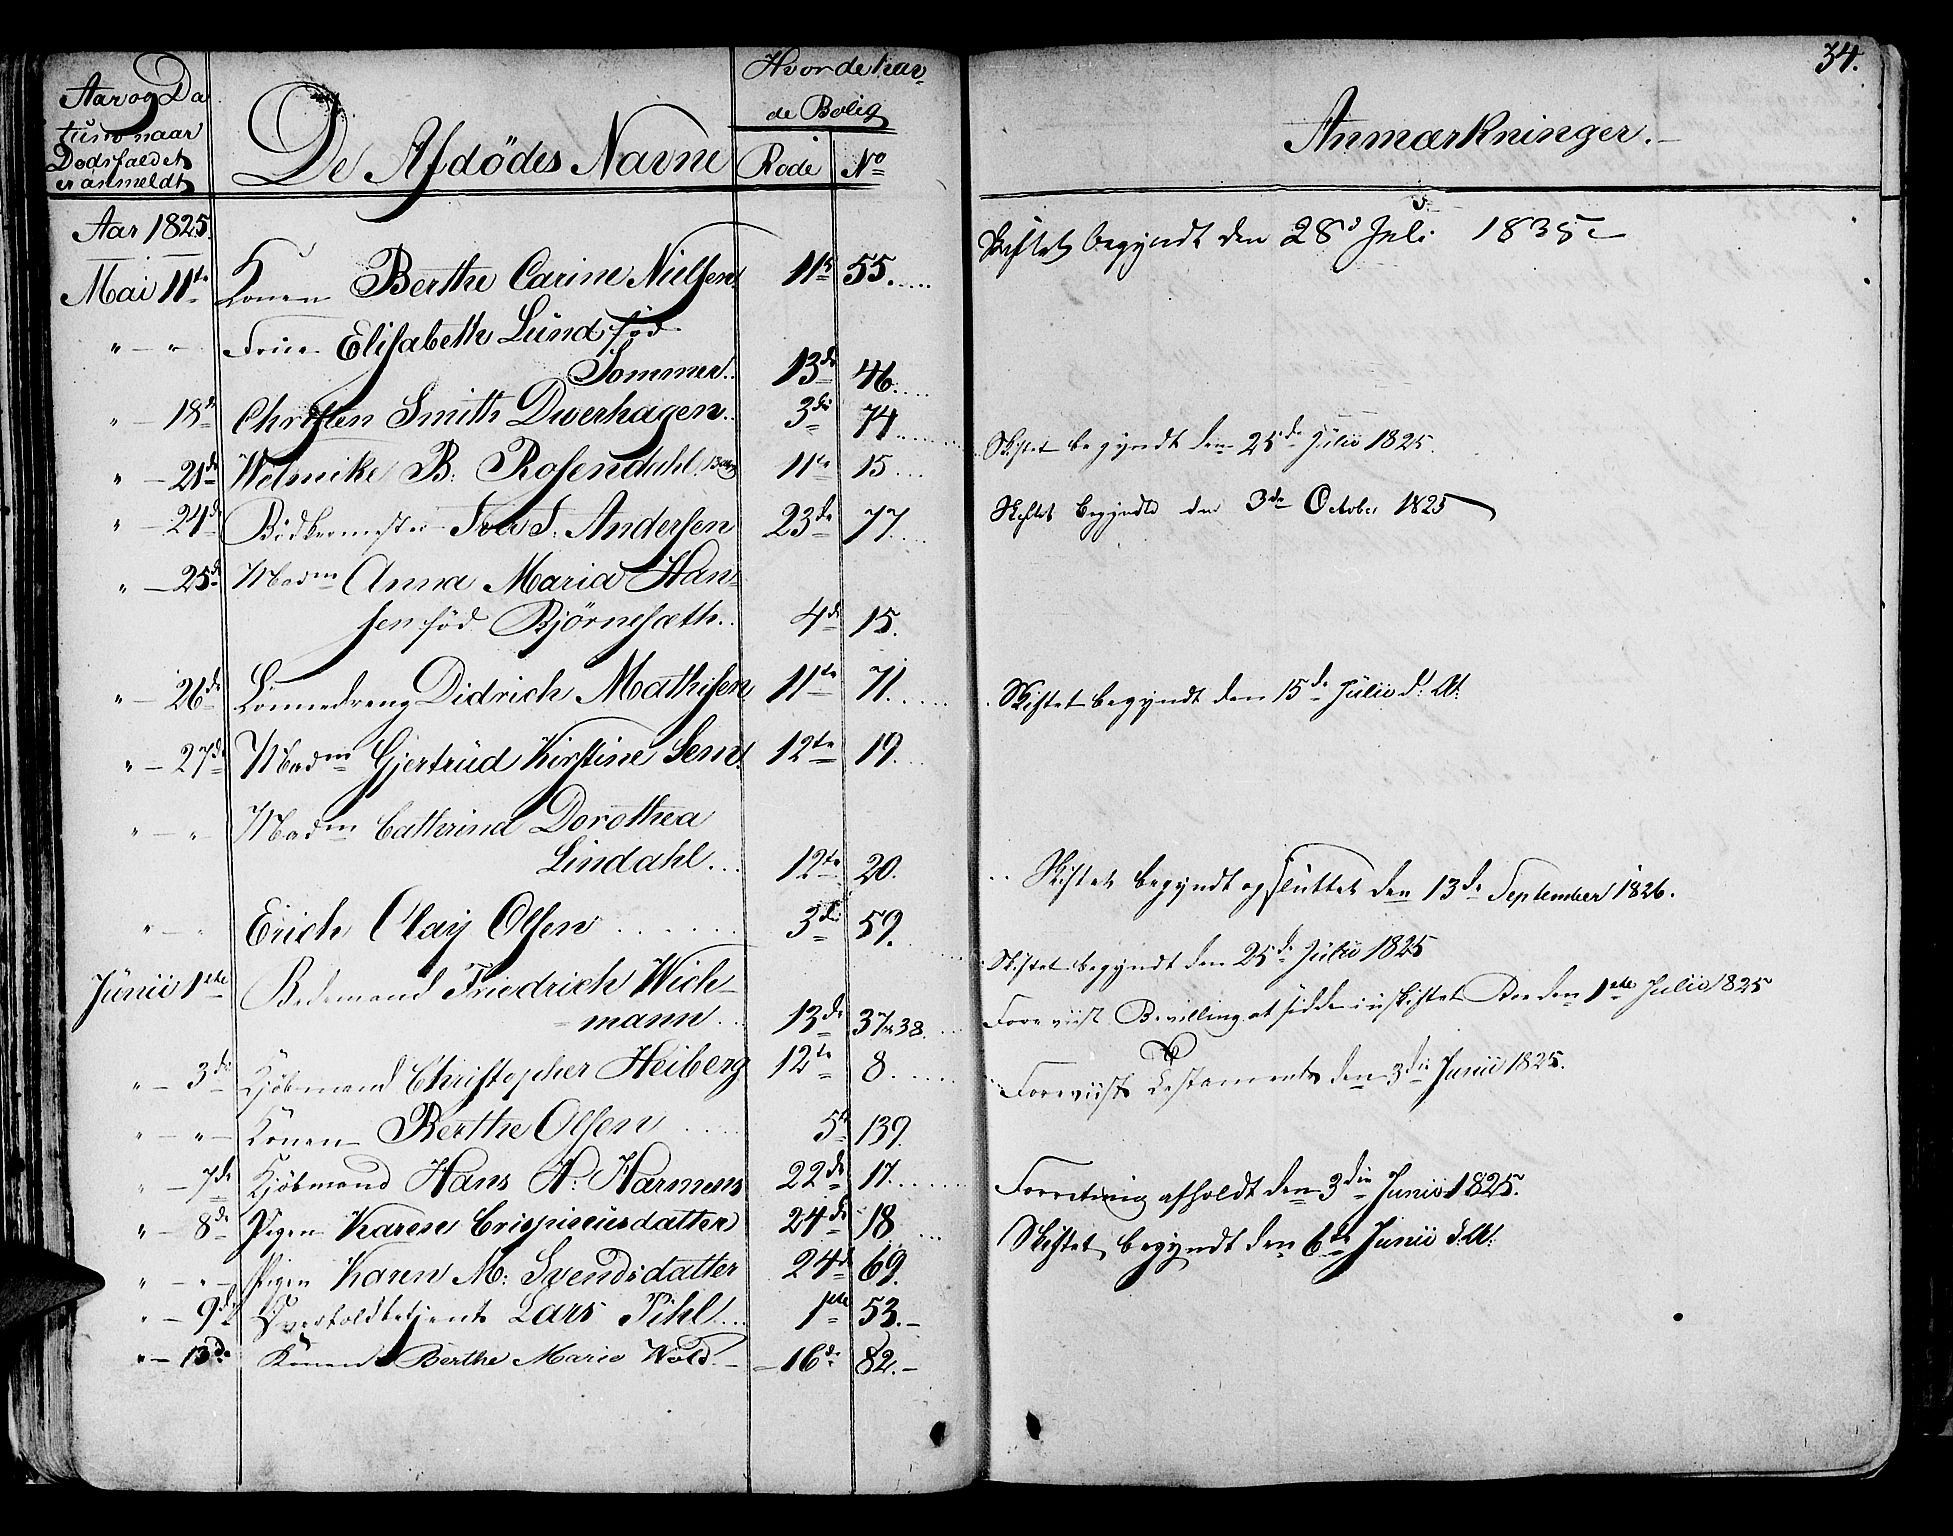 34.
Aar og Da
tum naar
Dødsfaldet
er anmeldt
De Afdødes Navne
Hvor de hav
de Bolig
Rode No
Anmærkninger.
Aar 1825.
Skiftet begyndt den 28d Juli 1835
Mai 11te Konen Berthe Carine Nielsen 11te 55.
" — " Frue Elisabeth Lund fød
Sommer. 13de 46.
" — 18de Christen Smith Dwerhagen 3die 74. Skiftet begyndt den 25de Julii 1825.
" — 21de Welmike B: Rosendahl 11te 15.
" — 24de Bødkermester Iver S. Andersen 23de 77. Skiftet begyndte den 3die October 1825
" — 25de Madm Anna Maria Han
sen fød Bjørnesæth. 4de 15.
" — 26de Lønnedreng Didrich Mathisen 11te 71. Skiftet begyndt den 15de Julii d: A:
" — 27de Madm Gjertrud Kirstine Sem 12te 19.
" — " Madm Cathrina Dorothea
Lindahl 12te 20. Skiftet begyndt og sluttet den 13de September 1826.
" — " Erich Olay Olsen 3die 59. Skiftet begyndt den 25de Julii 1825
Junii 1ste Bedemand Friedrich Wich-
mann 13de 37 & 38. Foreviist Bevilling at sidde i uskiftet Boe den 1ste Julii 1825
" — 3die Kjøbmand Christopher Heiberg 12te 8 Foreviist Testamente den 3die Junii 1825.
" — " — Konen Berthe Olsen 5te 139.
" — 7de Kjøbmand Hans H: Harmens 22de 17. Forretning afholdt den 3die Junii 1825.
" — 8de Pigen Karen Crispinusdatter 24de 18 Skiftet begyndt den 6te Junii d: A:
" — " — Pigen Karen M: Svendsdatter 24de 69.
" — 9de Overtoldbetjent Lars Pihl 1ste 53. —
" — 13de Konen Berthe Marie Wold — 16de 82. —